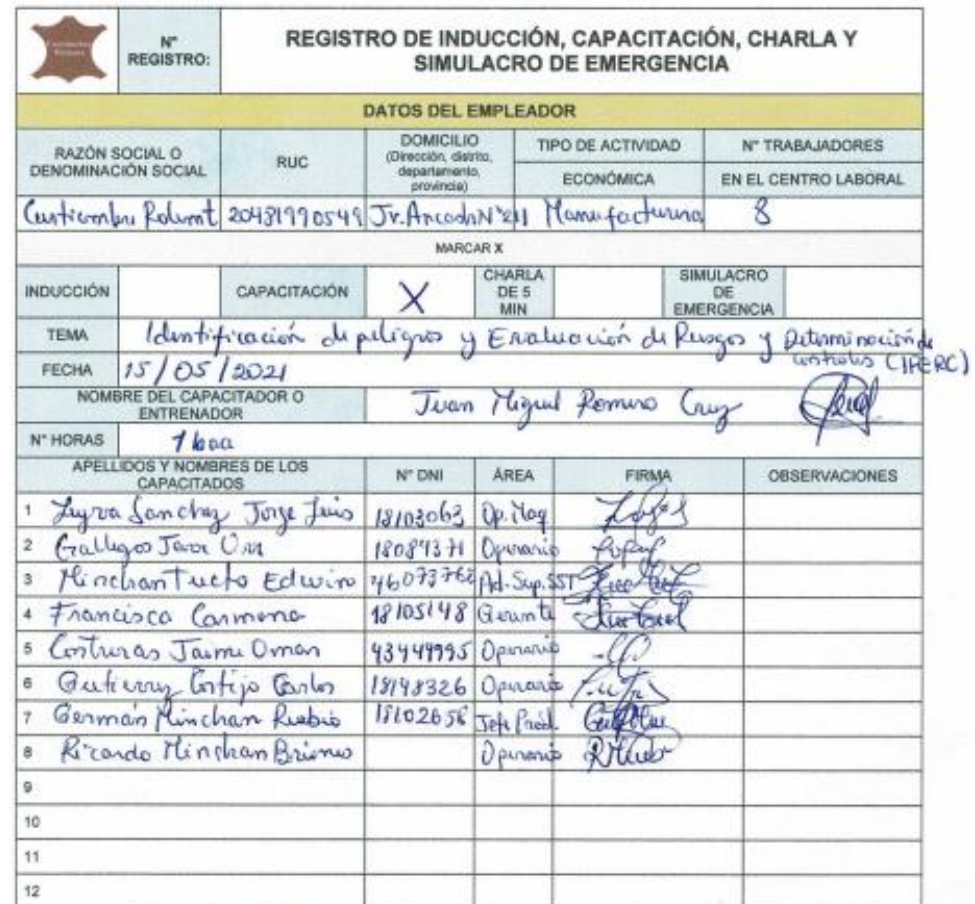 N° REGISTRO:
REGISTRO DE INDUCCIÓN, CAPACITACIÓN, CHARLA Y SIMULACRO DE EMERGENCIA
DATOS DEL EMPLEADOR
RAZÓN SOCIAL O DENOMINACIÓN SOCIAL
RUC
DOMICILIO (Dirección, distrito, departamento, provincia)
TIPO DE ACTIVIDAD ECONÓMICA
N° TRABAJADORES EN EL CENTRO LABORAL
20481990549 Jr. N° 211 Manufacturera 8
MARCAR X
INDUCCIÓN CAPACITACIÓN X CHARLA DE 5 MIN SIMULACRO DE EMERGENCIA
TEMA Identificación de peligros y Evaluación de Riesgos y Determinación de controles (IPERC)
FECHA 15/05/2021
NOMBRE DEL CAPACITADOR O ENTRENADOR Juan Miguel Romero Cruz
N° HORAS 1 hora
APELLIDOS Y NOMBRES DE LOS CAPACITADOS N° DNI ÁREA FIRMA OBSERVACIONES
1 Leyva Sanchez Jorge Luis 18103063 Op. Maq
2 Gallegos Operario
3 Minchan Tucto Edwin Ad. Sup. SST
4 Francisca Carmona 18105148 Gerente
5 Contreras Jaime Omar 43449995 Operario
6 Gutierrez Cortijo Carlos 18198326 Operario
7 Germán Minchan Rubio 18102656 Jefe Prod.
8 Ricardo Minchan Briones Operario
9
10
11
12